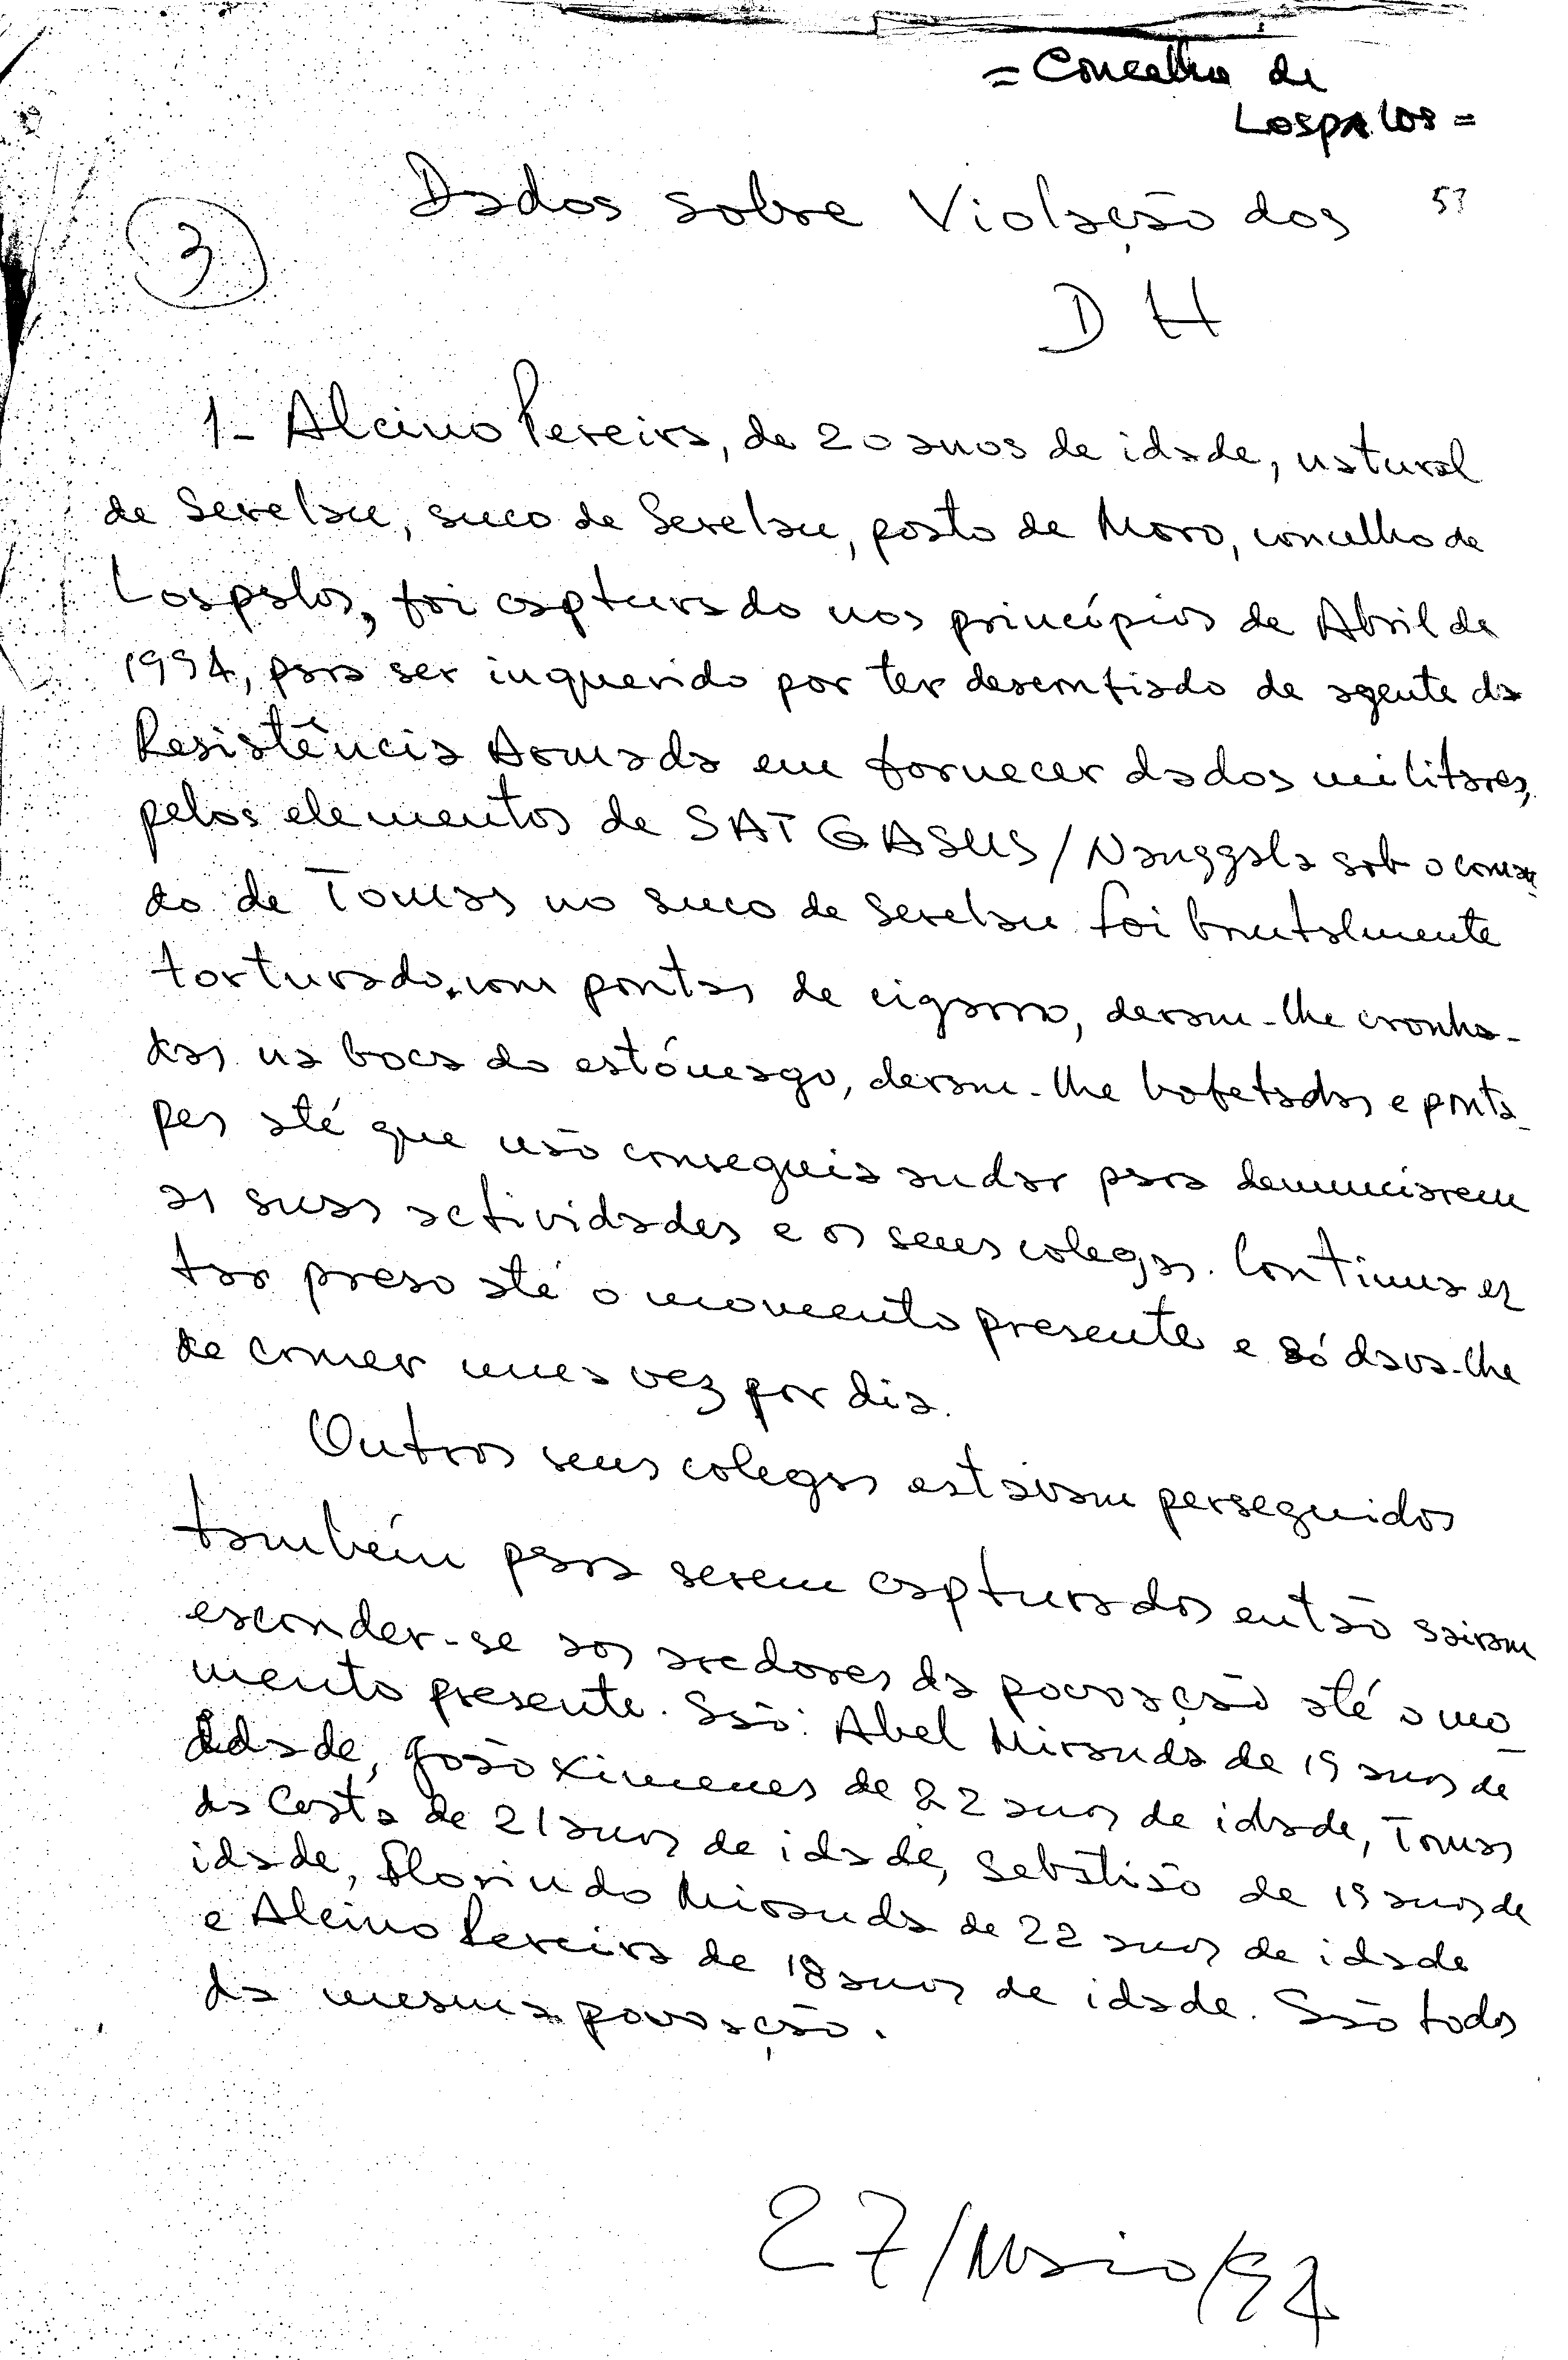 = Concelho de
Lospalos =
53
Dados sobre Violação dos
D H
3
1- Alcino Pereira, de 20 anos de idade, natural
de Serelau, suco de Serelau, posto de Moro, concelho de
Lospalos, foi capturado nos princípios de Abril de
1994, para ser inquerido por ter desconfiado de agente da
Resistência Armada em fornecer dados militares,
pelos elementos de SATGASUS/Nanggala sob o coman-
do de Tomas no suco de Serelau foi brutalmente
torturado, com pontas de cigarro, deram-lhe cronha-
das na boca do estómago, deram-lhe bofetadas e ponta-
pes até que não conseguia andar para denunciarem
as suas actividades e os seus colegas. Continua es
tar preso até o momento presente e só dava-lhe
de comer uma vez por dia.
Outros seus colegas estavam perseguidos
também para serem capturados então sairam
esconder-se aos aredores da povoação até o mo-
mento presente. São: Abel Miranda de 19 anos de
idade, João Ximenes de 22 anos de idade, Tomas
da Costa de 21 anos de idade, Sebstião de 19 anos de
idade, Florindo Miranda de 22 anos de idade
e Alcino Pereira de 18 anos de idade. São todos
da mesma povoação.
27/Maio/94